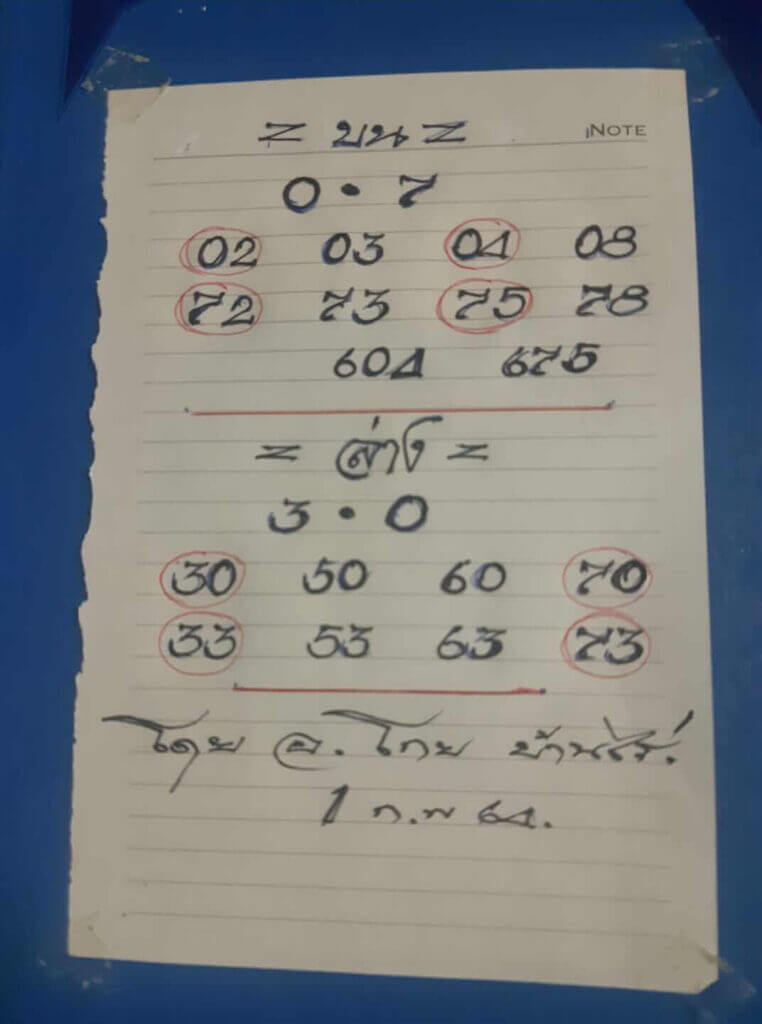 iNOTE
= บน =
0 • 7
02 03 04 08
72 73 75 78
604 675
= ล่าง =
3 • 0
30 50 60 70
33 53 63 73
โดย อ. โกย บ้านไร่.
1 ก.พ 64.